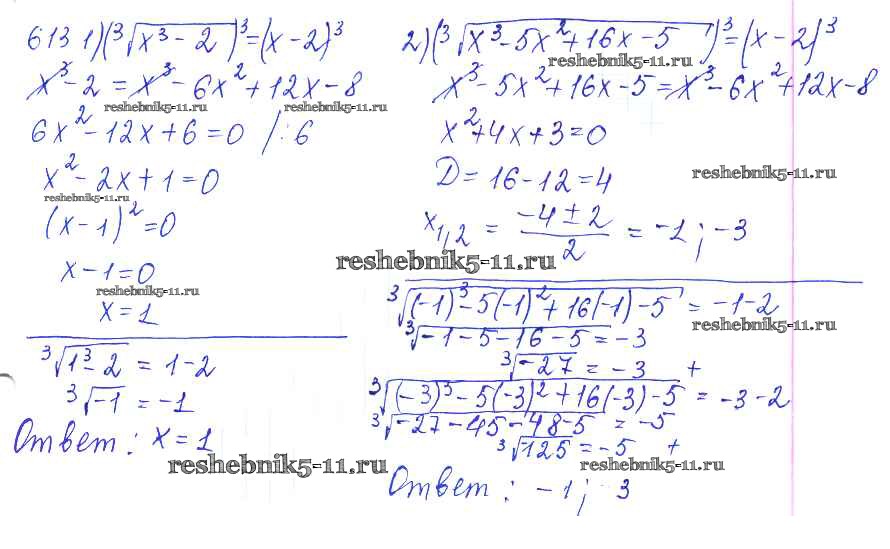 613 1) (³√(x³ - 2))³ = (x - 2)³
x³ - 2 = x³ - 6x² + 12x - 8
reshebnik5-11.ru reshebnik5-11.ru
6x² - 12x + 6 = 0 /: 6
x² - 2x + 1 = 0
reshebnik5-11.ru
(x - 1)² = 0
x - 1 = 0
reshebnik5-11.ru
x = 1
³√(1³ - 2) = 1 - 2
³√(-1) = -1
Ответ: x = 1
reshebnik5-11.ru
2) (³√(x³ - 5x² + 16x - 5))³ = (x - 2)³
reshebnik5-11.ru
x³ - 5x² + 16x - 5 = x³ - 6x² + 12x - 8
x² + 4x + 3 = 0
D = 16 - 12 = 4
reshebnik5-11.ru
x₁,₂ = (-4 ± 2)/2 = -1; -3
reshebnik5-11.ru
³√((-1)³ - 5(-1)² + 16(-1) - 5) = -1 - 2
³√(-1 - 5 - 16 - 5) = -3
reshebnik5-11.ru
³√(-27) = -3 +
³√((-3)³ - 5(-3)² + 16(-3) - 5) = -3 - 2
³√(-27 - 45 - 48 - 5) = -5
³√(-125) = -5 +
reshebnik5-11.ru
Ответ: -1; -3